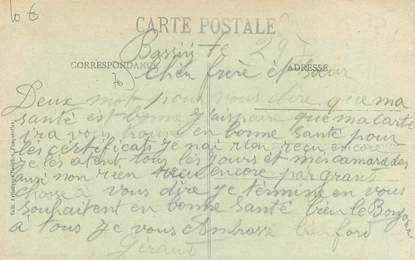 10 €
CARTE POSTALE
Bassins le 29
CORRESPONDANCE
ADRESSE
cher frère et sœur
Deux mot pour vous dire que ma
santé est bonne j'aispaire que ma carte
ira vous trouve en bonne santé pour
les certificats je n'ai rien reçu encore
je les atent tous les jours et mes camarades
ausi non rien recu encore pas grand
chose à vous dire je termine en vous
souhaitent en bonne santé bien le Bonjour
à tous je vous Ambrasse bien ford
Géraud